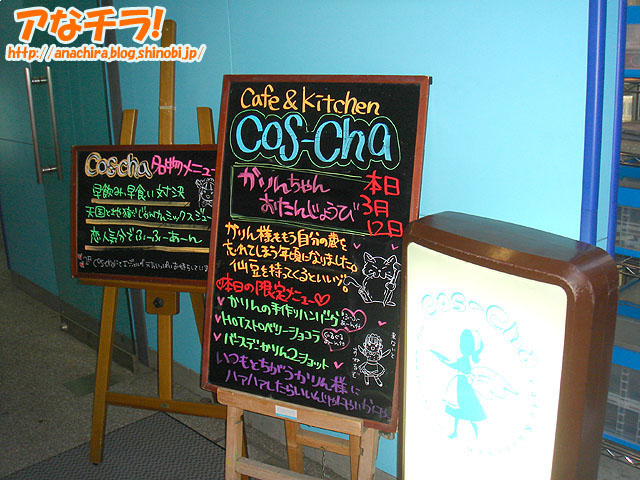 アなチラ!
http://anachira.blog.shinobi.jp/
Cos-cha 名物メニュー
早飲み、早食い対決
天国と地獄!じゃんけんミックスジュー
恋人気分でふーふーあーん
Cafe & Kitchen
Cos-Cha
かりんちゃん
おたんじょうび
本日
3月
12日
かりん様ももう自分の歳を
忘れてしまう年頃になりました。
仙豆を持ってくるといいゾ。
♥本日の限定メニュー♥
♥かりんの手作りハンバーグ
♥HOTストロベリーショコラ
♥バースデかりん2ショット
いつもとちがうかりん様に
ハァハァしたらいいんじゃないかな
Cos-Cha